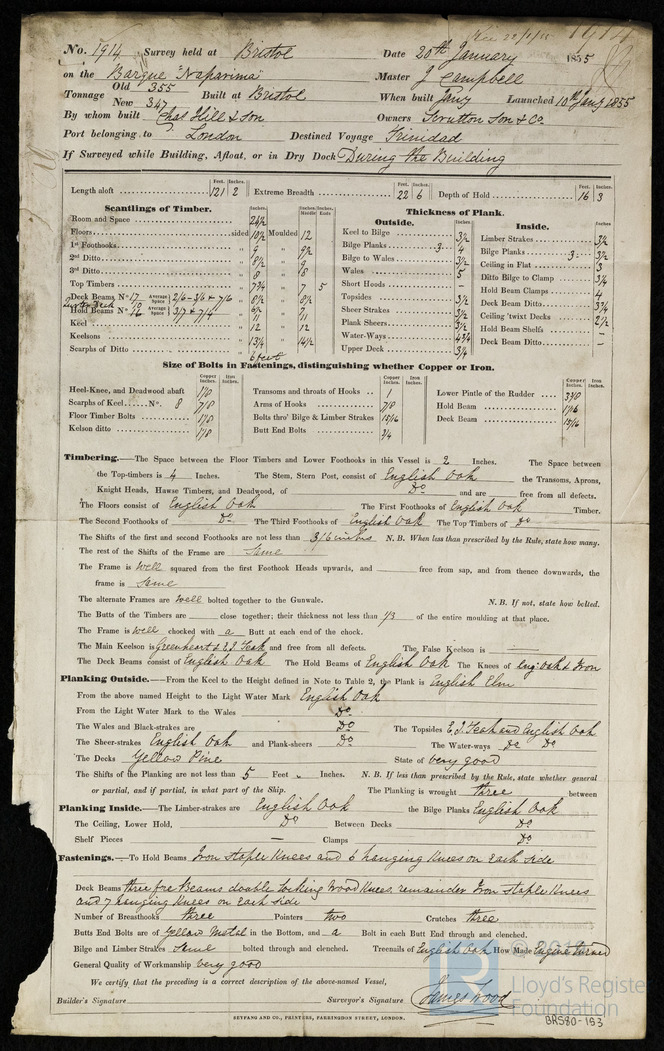 1914
No. 1914 Survey held at Bristol Date 20th January 1855
on the Barque "Naparima" Master J Campbell
Tonnage Old 355 New 347 Built at Bristol When built Jany Launched 10th Jany 1855
By whom built Chas Hill & Son Owners Scrutton Son & Co
Port belonging to London Destined Voyage Trinidad
If Surveyed while Building, Afloat, or in Dry Dock During the Building
Feet. Inches. Feet. Inches. Feet. Inches.
Length aloft 121 2 Extreme Breadth 22 6 Depth of Hold 16 3
Scantlings of Timber.
Room and Space 24 1/2
Floors sided 10 1/2 Moulded 12
1st Foothooks " 9 " 9 1/2
2nd Ditto " 8 1/2 " 9
3rd Ditto " 8 " 8
Top Timbers " 7 3/4 " 7 5
Deck Beams No 17 Average Space 2/6-3/6 & 7/6 " 8 1/2 " 8 1/2
Hold Beams No 12 Average Space 3/7 & 7/4 "
Keel " 11 " 11
Keelsons " 12 " 12
Scarphs of Ditto 6 feet
Thickness of Plank.
Outside.
Keel to Bilge 3 1/2
Bilge Planks 3 4
Bilge to Wales 3 1/2
Wales 5
Short Hoods —
Topsides 3 1/2
Sheer Strakes 3 1/2
Plank Sheers 3 1/2
Water-Ways 4 3/4
Upper Deck 3 1/4
Inside.
Limber Strakes 3 1/2
Bilge Planks 3 3 1/2
Ceiling in Flat 3
Ditto Bilge to Clamp 3 1/4
Hold Beam Clamps 4
Deck Beam Ditto 3 3/4
Ceiling 'twixt Decks 2 1/2
Hold Beam Shelfs —
Deck Beam Ditto —
Size of Bolts in Fastenings, distinguishing whether Copper or Iron.
Copper Inches. Iron Inches. Copper Inches. Iron Inches. Copper Inches. Iron Inches.
Heel-Knee, and Deadwood abaft 1 1/8 Transoms and throats of Hooks 1 Lower Pintle of the Rudder
Scarphs of Keel No. 8 7/8 Arms of Hooks 7/8 Hold Beam
Floor Timber Bolts 1 1/8 Bolts thro' Bilge & Limber Strakes 15/16 Deck Beam 15/16
Kelson ditto 1 1/8 Butt End Bolts 3/4
Timbering.—The Space between the Floor Timbers and Lower Foothooks in this Vessel is 2 Inches. The Space between
the Top-timbers is 4 Inches. The Stem, Stern Post, consist of English Oak the Transoms, Aprons,
Knight Heads, Hawse Timbers, and Deadwood, of Do and are free from all defects.
The Floors consist of English Oak The First Foothooks of English Oak Timber.
The Second Foothooks of Do The Third Foothooks of English Oak The Top Timbers of Do
The Shifts of the first and second Foothooks are not less than 3/6 inches N. B. When less than prescribed by the Rule, state how many.
The rest of the Shifts of the Frame are Same
The Frame is Well squared from the first Foothook Heads upwards, and free from sap, and from thence downwards, the
frame is Same
The alternate Frames are Well bolted together to the Gunwale. N. B. If not, state how bolted.
The Butts of the Timbers are close together; their thickness not less than 1/3 of the entire moulding at that place.
The Frame is Well chocked with a Butt at each end of the chock.
The Main Keelson is Greenheart & E.I. Teak and free from all defects. The False Keelson is —
The Deck Beams consist of English Oak The Hold Beams of English Oak The Knees of Eng: Oak & Iron
Planking Outside.—From the Keel to the Height defined in Note to Table 2, the Plank is English Elm
From the above named Height to the Light Water Mark English Oak
From the Light Water Mark to the Wales Do
The Wales and Black-strakes are Do The Topsides E.I. Teak and English Oak
The Sheer-strakes English Oak and Plank-sheers Do The Water-ways Do Do
The Decks Yellow Pine State of very good
The Shifts of the Planking are not less than 5 Feet " Inches. N. B. If less than prescribed by the Rule, state whether general
or partial, and if partial, in what part of the Ship. The Planking is wrought three between
Planking Inside.—The Limber-strakes are English Oak the Bilge Planks English Oak
The Ceiling, Lower Hold, Do Between Decks Do
Shelf Pieces — Clamps Do
Fastenings.—To Hold Beams Iron Staple Knees and 6 hanging Knees on each side
Deck Beams three fore Beams double locking Wood Knees, remainder Iron Staple Knees
and 7 hanging Knees on each side
Number of Breasthooks three Pointers two Crutches three
Butts End Bolts are of Yellow Metal in the Bottom, and a Bolt in each Butt End through and clenched.
Bilge and Limber Strakes Same bolted through and clenched. Treenails of English Oak How Made Engine turned
General Quality of Workmanship very good
We certify that the preceding is a correct description of the above-named Vessel,
Builder's Signature Surveyor's Signature James Wood
SEYFANG AND CO., PRINTERS, FARRINGDON STREET, LONDON.
Lloyd's Register
Foundation
BRS80-153